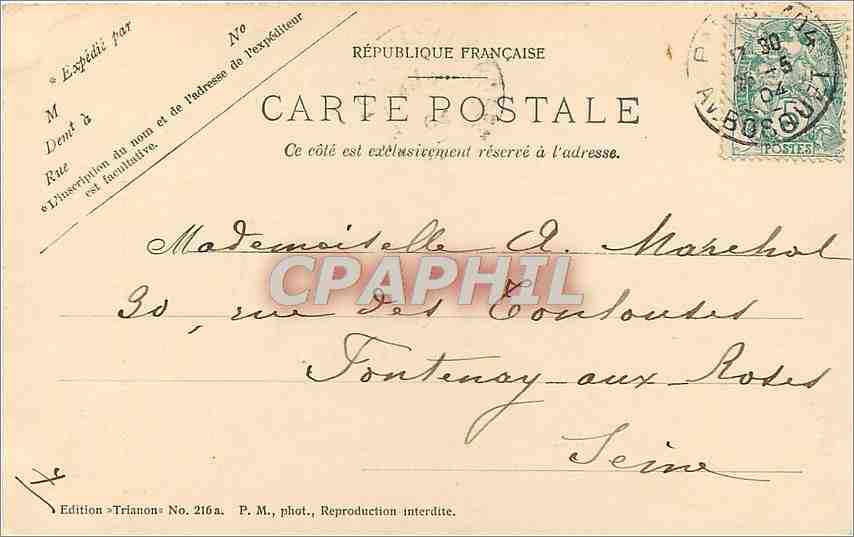 * Expédié par
No
M
Demt à
Rue
*L'inscription du nom et de l'adresse de l'expéditeur
est facultative.
RÉPUBLIQUE FRANÇAISE
CARTE POSTALE
Ce côté est exclusivement réservé à l'adresse.
17 30
-5
04
AV. BOSQUET
POSTES
Mademoiselle A. Marchal
CPAPHIL
30, rue des
Fontenay-aux-Roses
Seine
Edition »Trianon« No. 216a. P. M., phot., Reproduction interdite.